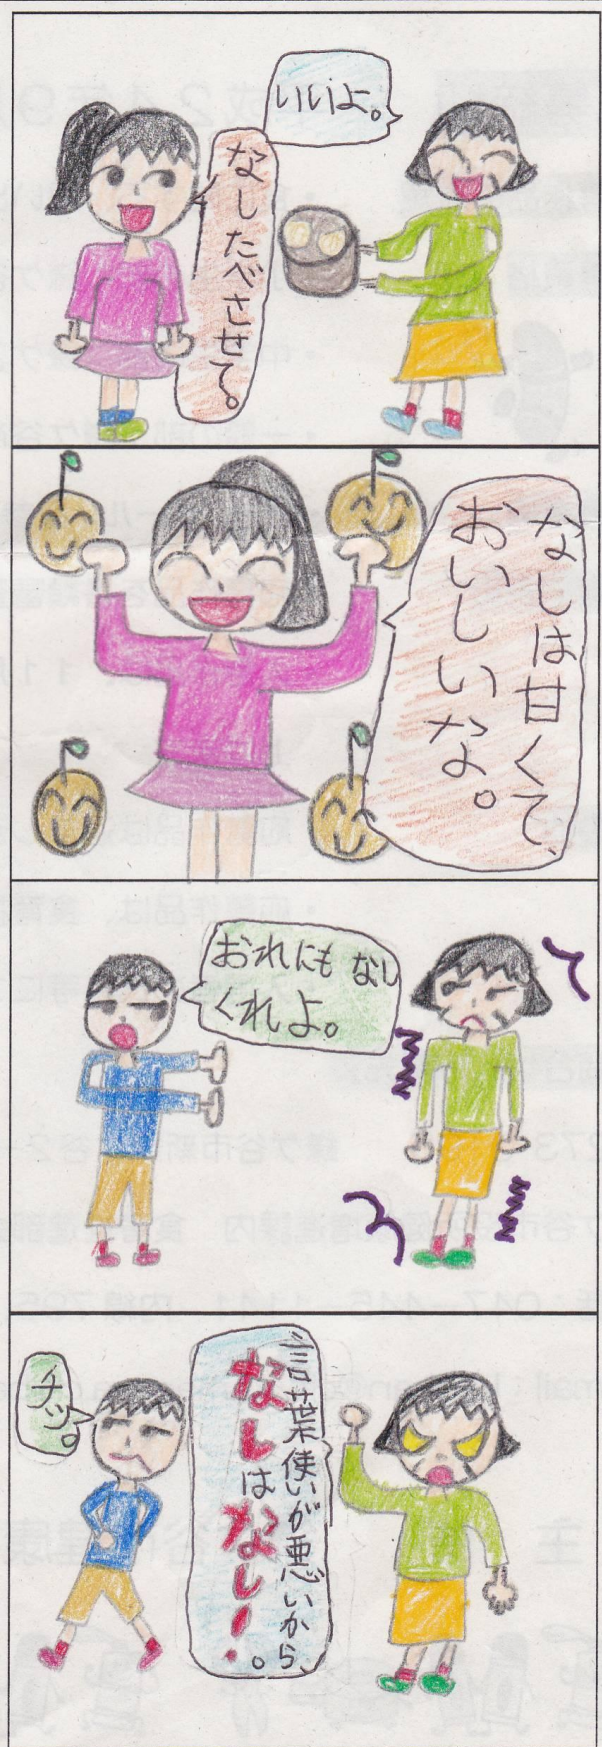 なしたべさせて。
いいよ。
なしは甘くて、
おいしいな。
おれにも なし
くれよ。
言葉使いが悪いから、
なしはなし!。
チッ。